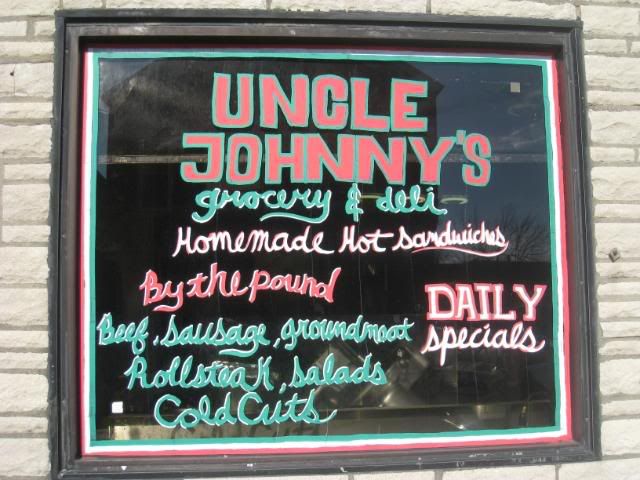 UNCLE
JOHNNY'S
grocery & deli
Homemade Hot Sandwiches
By the pound
Beef, Sausage, groundmeat
Rollsteak, Salads
Cold Cuts
DAILY
specials